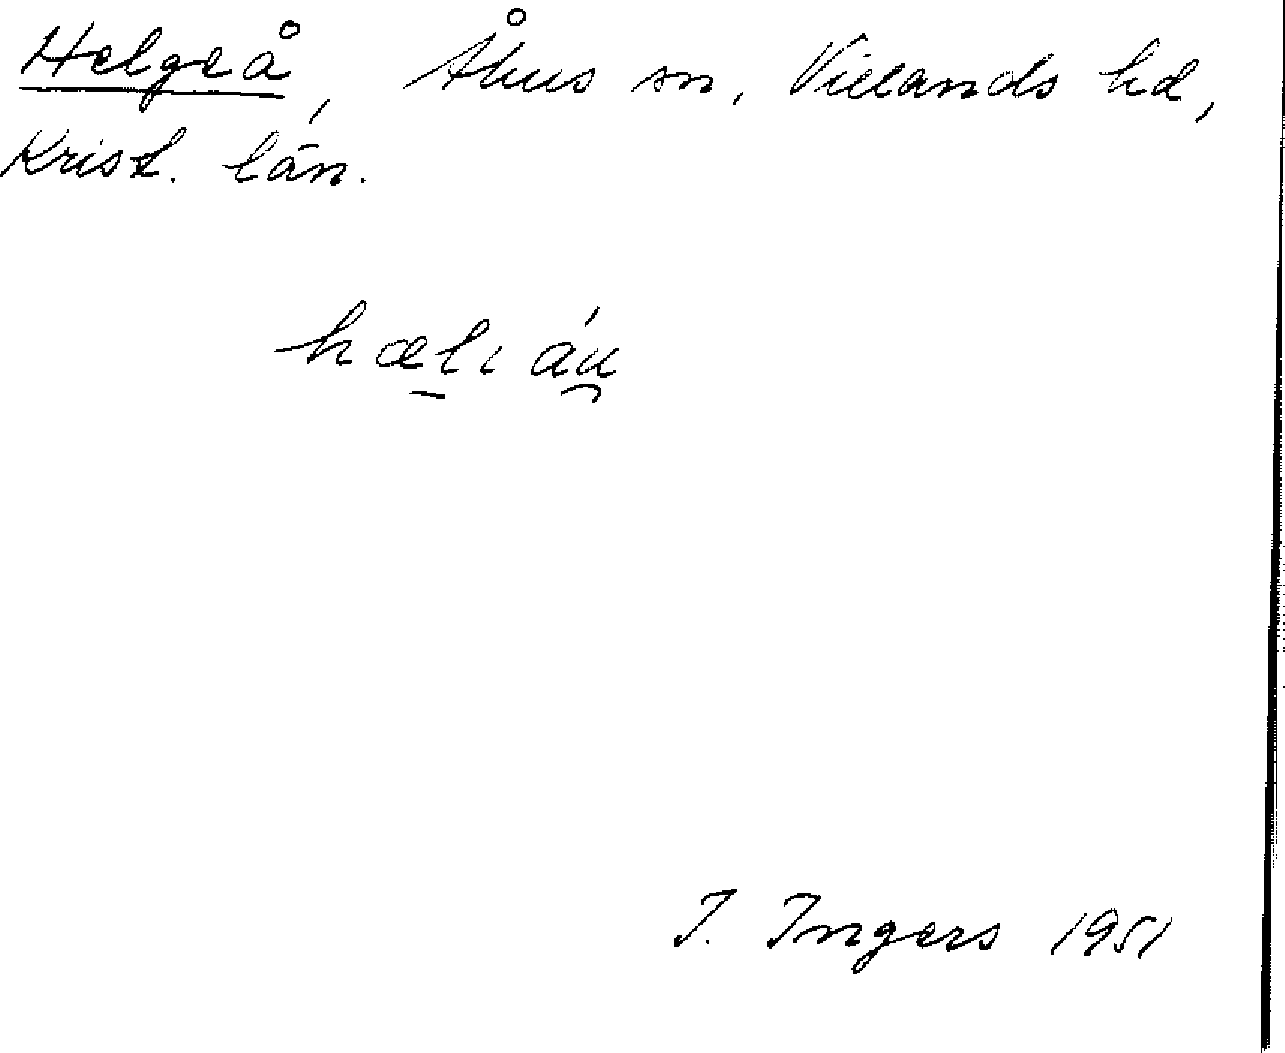 Helgeå, Åhus sn, Villands hd,
Krist. län.
hæli áu
I. Ingers 1951